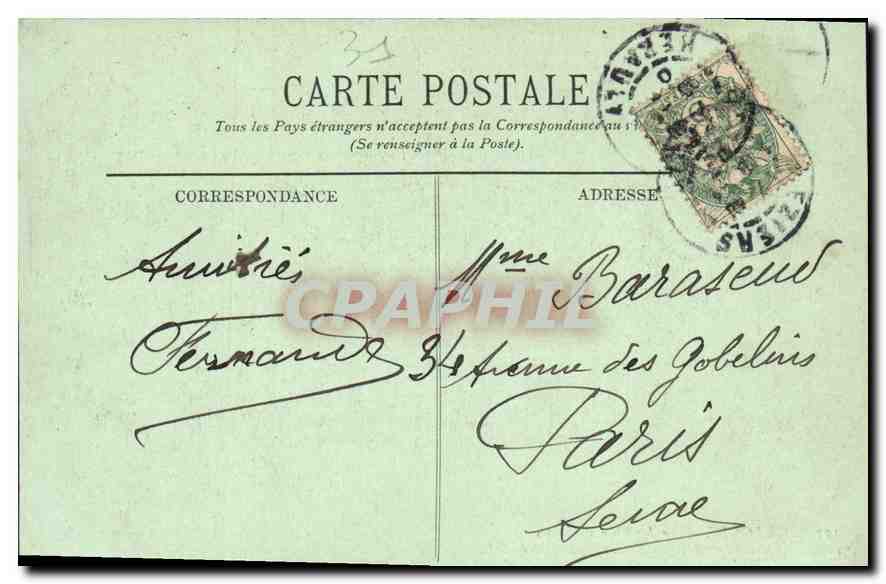 31
CARTE POSTALE
Tous les Pays étrangers n'acceptent pas la Correspondance au
(Se renseigner à la Poste).
CORRESPONDANCE
ADRESSE
Amitiés
Fernande
Mme Barascud
34 Avenue des Gobelins
Paris
Seine
CPAPHIL
HERAULT